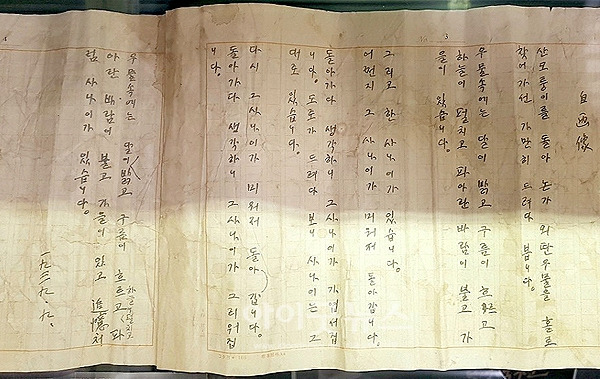 3
自画像
산모퉁이를 돌아 논가 외딴우물을 홀로
찾어가선 가만히 드려다 봅니다.
우물속에는 달이 밝고 구름이 흐르고
하늘이 펼치고 파아란 바람이 불고 가
을이 있습니다.
그리고 한 사나이가 있습니다.
어쩐지 그 사나이가 미워저 돌아갑니다.
돌아가다 생각하니 그사나이가 가엽서집
니다. 도로가 드려다 보니 사나이는 그
대로 있습니다.
다시 그사나이가 미워저 돌아 갑니다.
돌아가다 생각하니 그사나이가 그리워집
니다.
4
하늘이 펼치고
우물속에는 달이 밝고 구름이 흐르고 파
아란 바람이 불고 가을이 있고 追憶처
럼 사나이가 있습니다.
一九三九. 九.